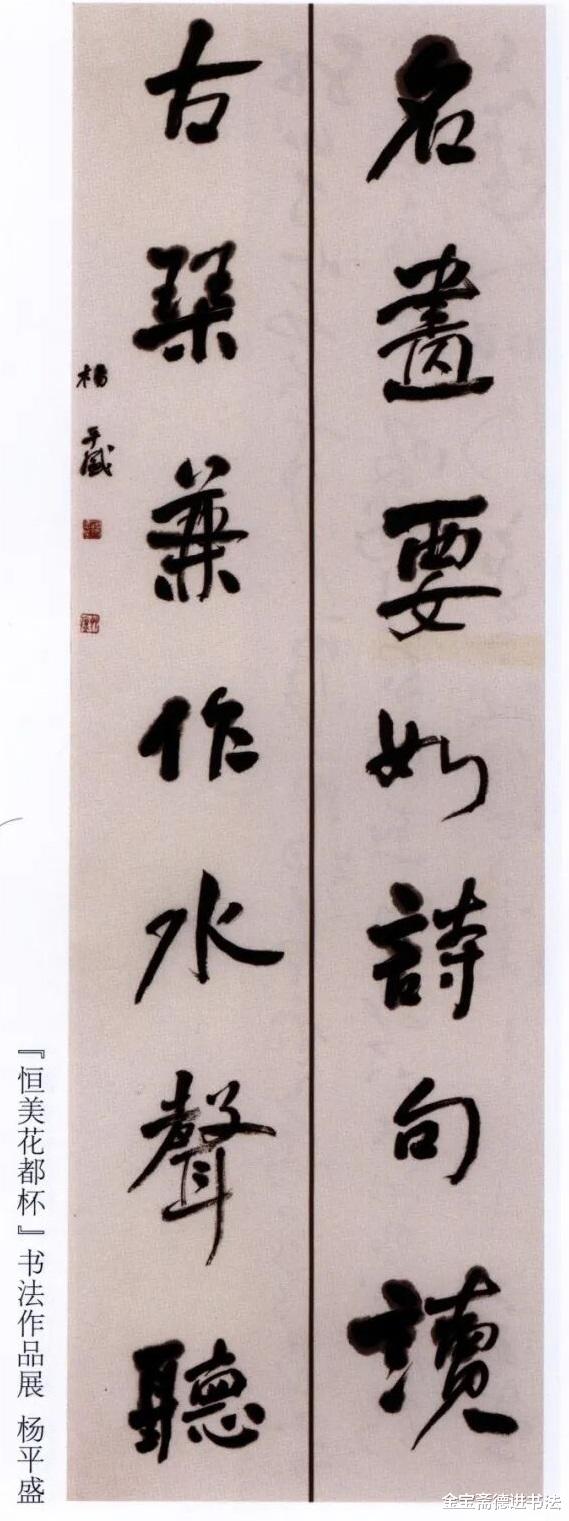 名畫要如詩句讀
古琴兼作水聲聽
楊平盛
『恒美花都杯』书法作品展 杨平盛
金宝斋德进书法